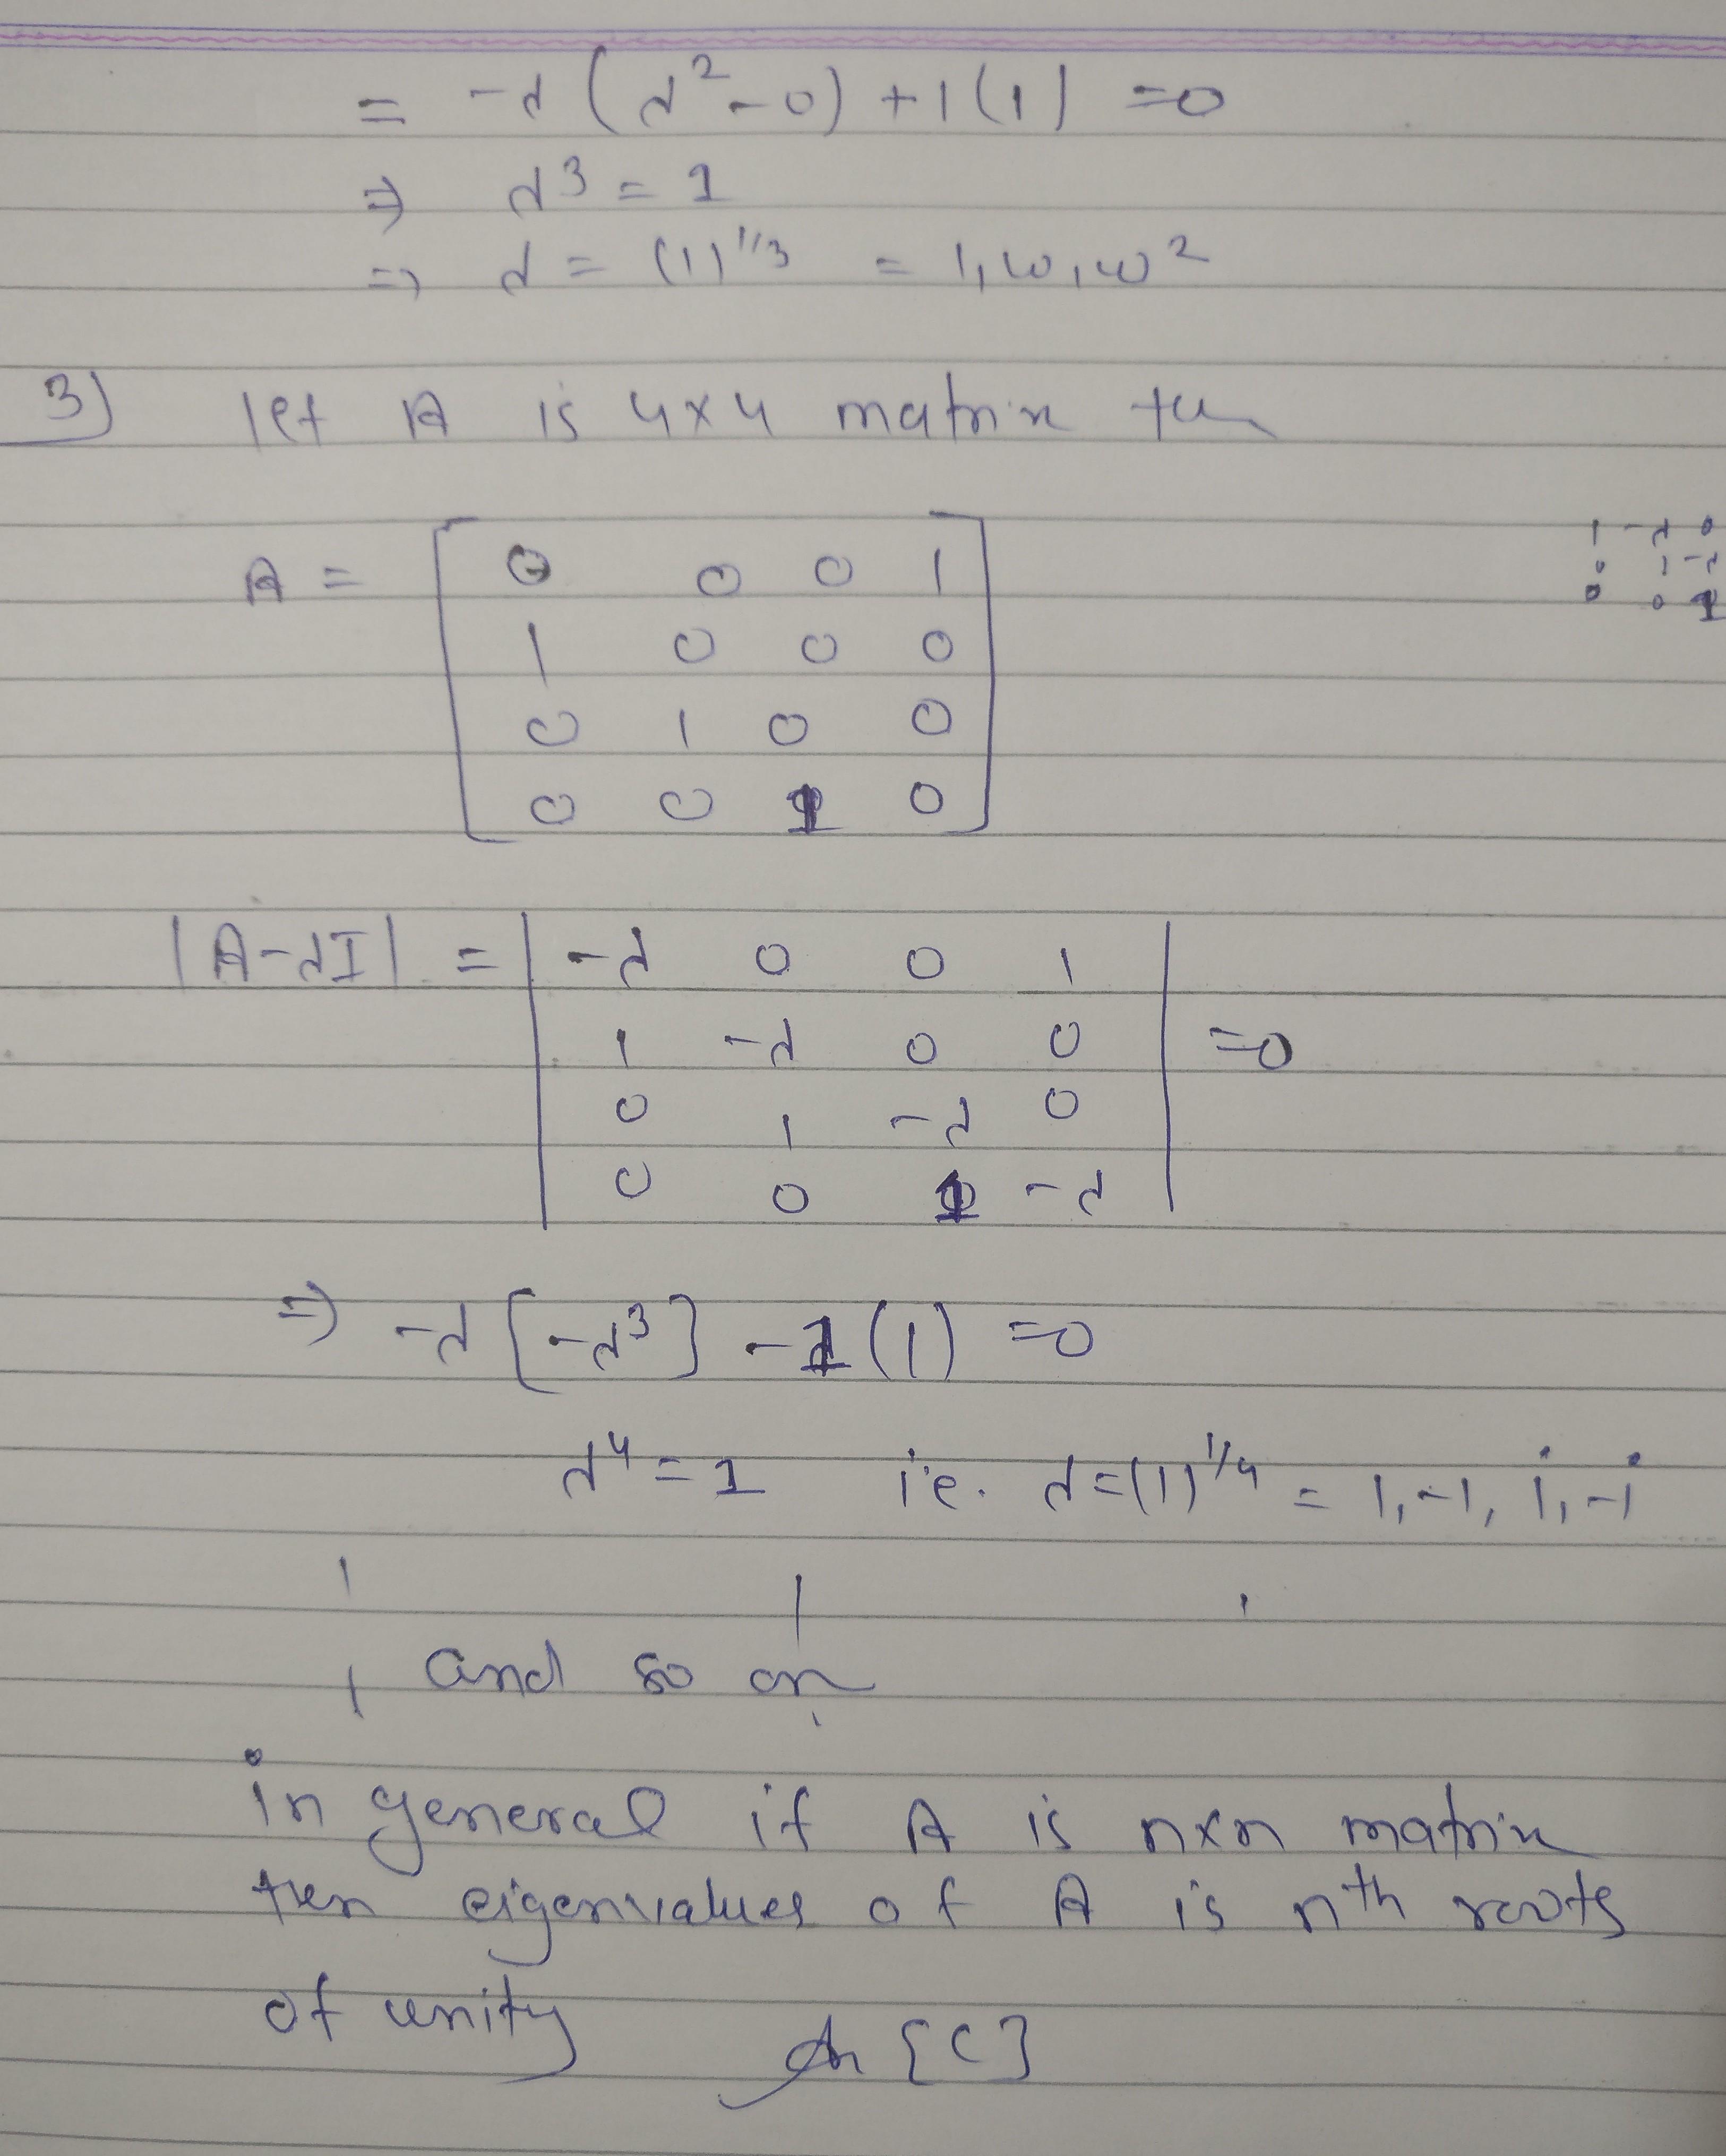 = -λ (λ² - 0) + 1(1) = 0
⇒ λ³ = 1
⇒ λ = (1)^1/3 = 1, ω, ω²
3) let A is 4×4 matrix then
A = [ 0 0 0 1
1 0 0 0
0 1 0 0
0 0 1 0 ]
1 -λ 0
0 1 -λ
0 0 1
|A-λI| = | -λ 0 0 1
1 -λ 0 0 | = 0
0 1 -λ 0
0 0 1 -λ |
⇒ -λ [-λ³] - 1(1) = 0
λ⁴ = 1 i.e. λ = (1)^1/4 = 1, -1, i, -i
and so on
in general if A is n×n matrix
then eigenvalues of A is nth roots
of unity An [C]